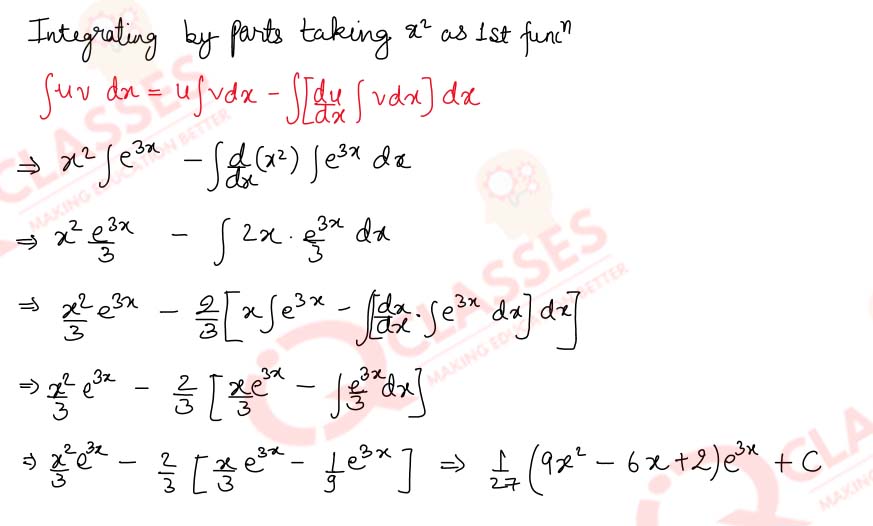 Integrating by parts taking x² as 1st funcⁿ
∫uv dx = u∫vdx - ∫[du/dx ∫vdx] dx
⇒ x² ∫e³ˣ - ∫d/dx(x²) ∫e³ˣ dx
⇒ x² e³ˣ/3 - ∫ 2x · e³ˣ/3 dx
⇒ x²/3 e³ˣ - 2/3 [x∫e³ˣ - ∫[dx/dx · ∫e³ˣ dx] dx]
⇒ x²/3 e³ˣ - 2/3 [x/3 e³ˣ - ∫e³ˣ/3 dx]
⇒ x²/3 e³ˣ - 2/3 [x/3 e³ˣ - 1/9 e³ˣ] ⇒ 1/27 (9x² - 6x + 2)e³ˣ + C
CLASSES
MAKING EDUCATION BETTER
IQ CLASSES
MAKING EDUCATION BETTER
CLASSES
MAKING